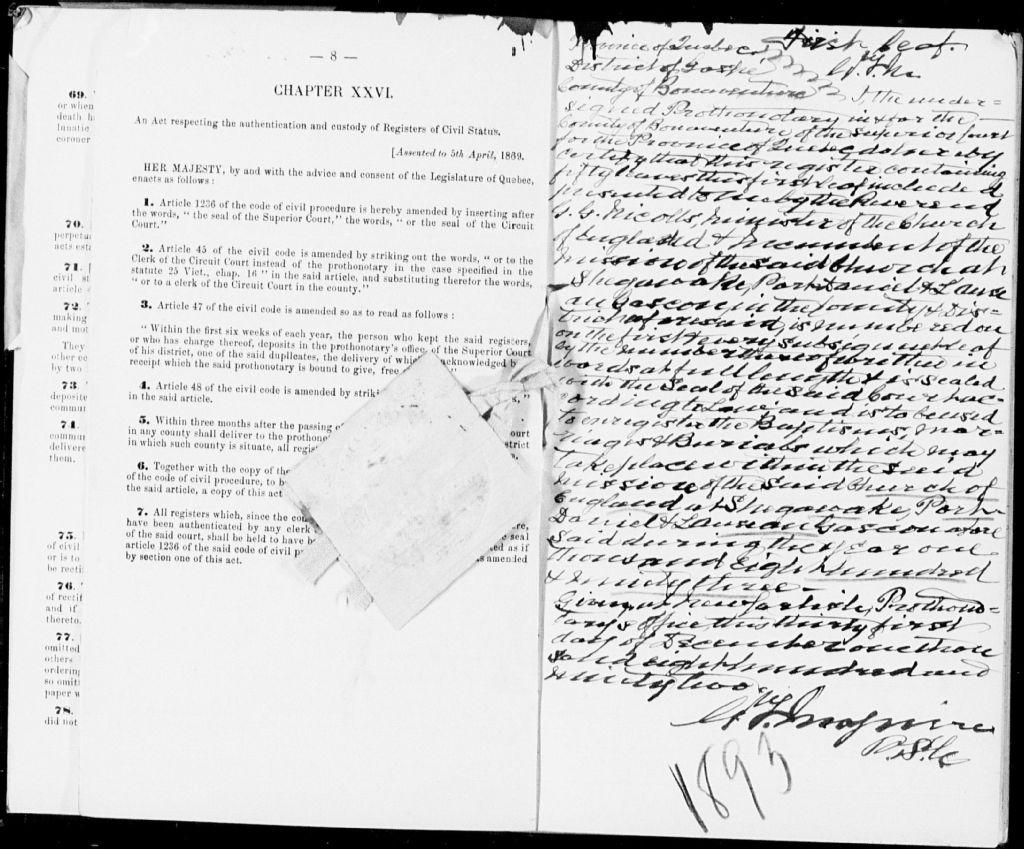 69.
or when
death h
lunatic
coroner
70.
perpetu
acts esta
71. [
civil st
article
72.
making
and mot
They
other co
by two
73
deposite
commun
74.
commun
delivere
them.
75.
of civil
or is to
be recti
76.
of rectif
and if
thereto.
77.
omitted
others
ordering
so omit
paper w
78.
did not
— 8 —
CHAPTER XXVI.
An Act respecting the authentication and custody of Registers of Civil Status.
[Assented to 5th April, 1869.
HER MAJESTY, by and with the advice and consent of the Legislature of Quebec,
enacts as follows :
1. Article 1236 of the code of civil procedure is hereby amended by inserting after
the words, “ the seal of the Superior Court,” the words, “ or the seal of the Circuit
Court.”
2. Article 45 of the civil code is amended by striking out the words, “ or to the
Clerk of the Circuit Court instead of the prothonotary in the case specified in the
statute 25 Vict., chap. 16 ” in the said article, and substituting therefor the words,
“ or to a clerk of the Circuit Court in the county.”
3. Article 47 of the civil code is amended so as to read as follows :
“ Within the first six weeks of each year, the person who kept the said registers,
or who has charge thereof, deposits in the prothonotary's office, of the Superior Court
of his district, one of the said duplicates, the delivery of which acknowledged b
receipt which the said prothonotary is bound to give, free ”
4. Article 48 of the civil code is amended by striki s, ”
in the said article.
5. Within three months after the passing ourt
in any county shall deliver to the prothono strict
in which such county is situate, all regis
6. Together with the copy of the
of the code of civil procedure, to b
the said article, a copy of this act
7. All registers which, since the com re,
have been authenticated by any clerk seal
of the said court, shall be held to have b ed as if
article 1236 of the said code of civil p s amended
by section one of this act.
First leaf.
Province of Quebec
District of Gaspé
County of Bonaventure I, the under=
signed Prothonotary in & for the
County of Bonaventure of the Superior Court
for the Province of Quebec do hereby
certify that this register containing
fifty leaves this first leaf included
presented to me by the Reverend
G. G. Nicolls, minister of the Church
of England & incumbent of the
mission of the said Church at
Shegawake, Port Daniel & L'anse
au Gascon, in the County & Dis=
trict aforesaid, is numbered on
on the first & every subsequent leaf
by the number thereof written in
words at full length & is sealed
with the Seal of the said Court ac=
cording to Law and is to be used
to enregister the Baptisms, Mar=
riages & Burials which may
take place within the said
mission of the said Church of
England at Shegawake, Port
Daniel & L'anse au Gascon afore
said during the year one
thousand Eight hundred
& ninety three-
Given at New Carlisle, Prothono=
tary's office this thirty first
day of December one thou
sand eight hundred and
ninety two
P.S.C.
1893